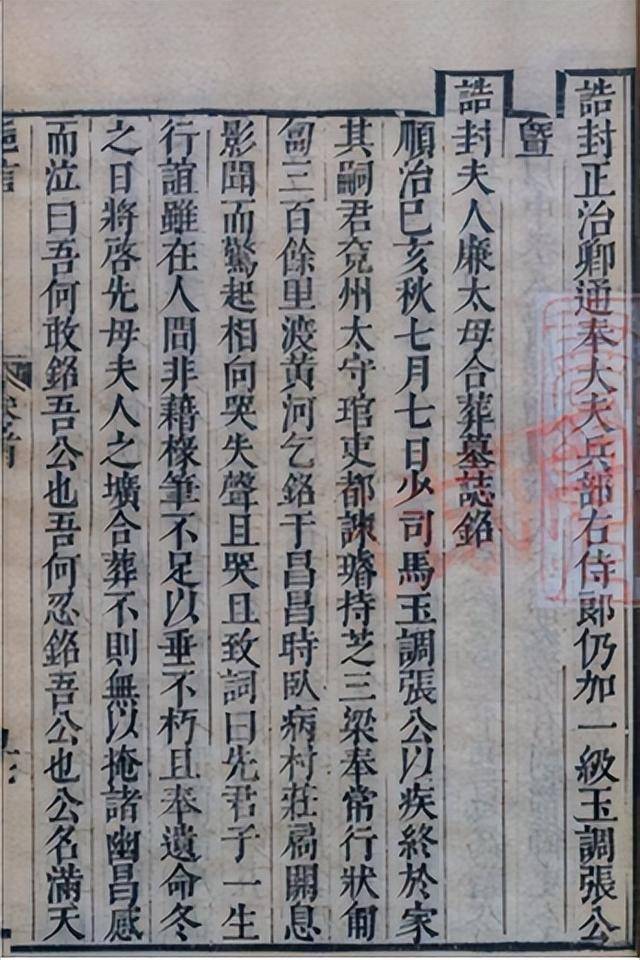 誥封正治卿通奉大夫兵部右侍郎仍加一級玉調張公
曁
誥封夫人廉太母合葬墓誌銘
順治己亥秋七月七日少司馬玉調張公以疾終於家
其嗣君兗州太守琯吏都諫璿持芝三梁奉常行狀匍
匐三百餘里渡黃河乞銘于昌昌時臥病村莊扃關息
影聞而驚起相向哭失聲且哭且致詞曰先君子一生
行誼雖在人間非藉椽筆不足以垂不朽且奉遺命冬
之日將啓先母夫人之壙合葬不則無以掩諸幽昌感
而泣曰吾何敢銘吾公也吾何忍銘吾公也公名滿天